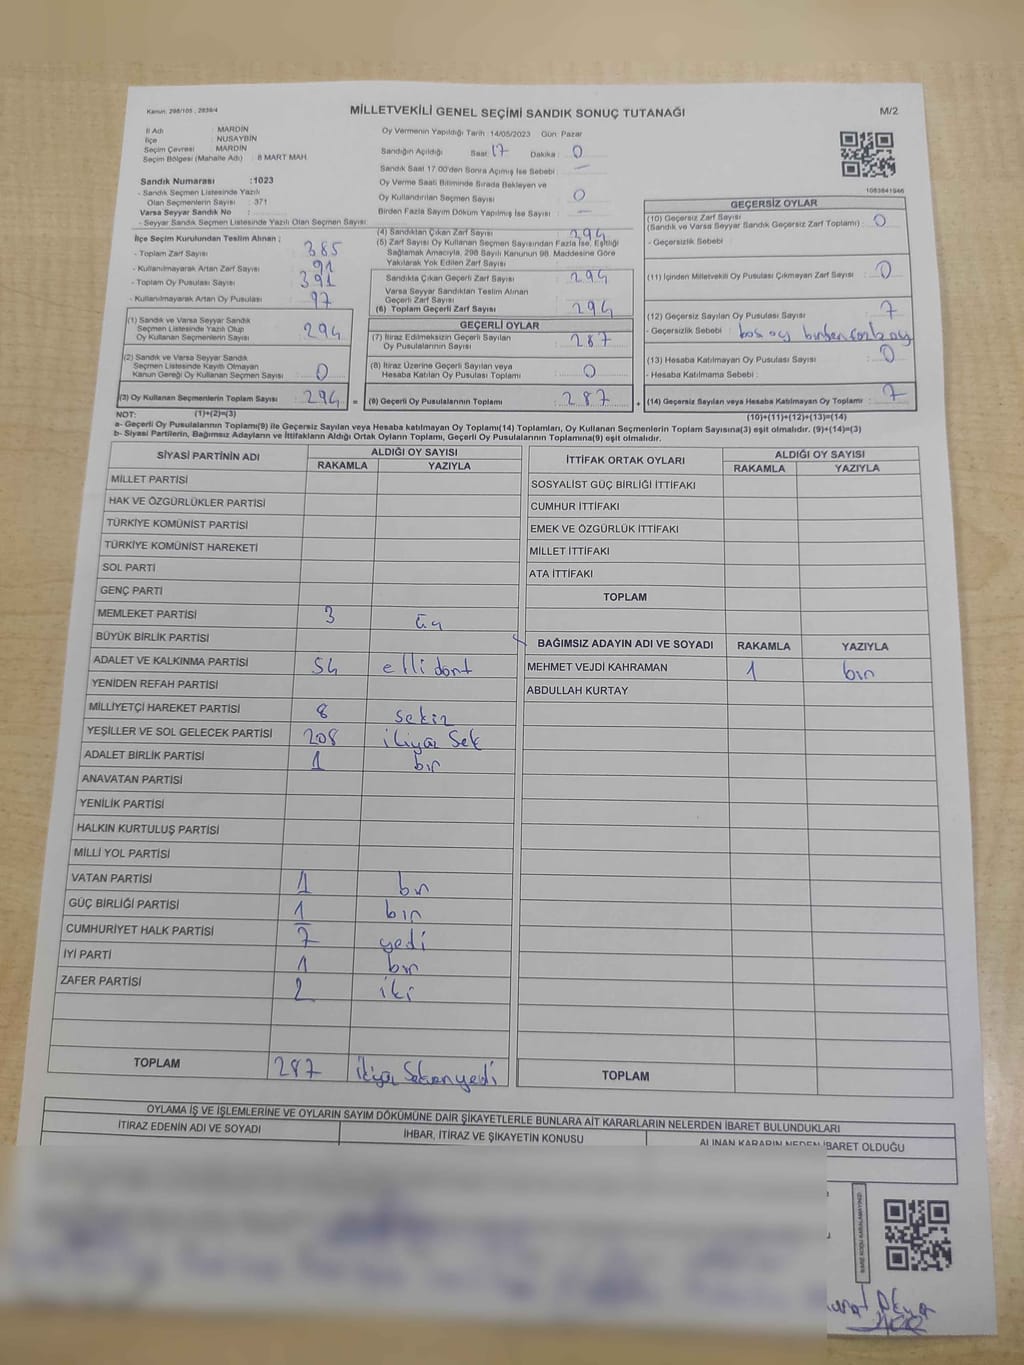 Kanun: 298/105 , 2839/4
MİLLETVEKİLİ GENEL SEÇİMİ SANDIK SONUÇ TUTANAĞI
M/2
İl Adı : MARDİN
İlçe : NUSAYBİN
Seçim Çevresi : MARDİN
Seçim Bölgesi (Mahalle Adı) : 8 MART MAH.
Sandık Numarası : 1023
- Sandık Seçmen Listesinde Yazılı
Olan Seçmenlerin Sayısı : 371
Varsa Seyyar Sandık No :
- Seyyar Sandık Seçmen Listesinde Yazılı Olan Seçmen Sayısı :
İlçe Seçim Kurulundan Teslim Alınan ;
- Toplam Zarf Sayısı : 385
- Kullanılmayarak Artan Zarf Sayısı : 91
- Toplam Oy Pusulası Sayısı : 391
- Kullanılmayarak Artan Oy Pusulası : 97
(1) Sandık ve Varsa Seyyar Sandık
Seçmen Listesinde Yazılı Olup
Oy Kullanan Seçmenlerin Sayısı : 294
(2) Sandık ve Varsa Seyyar Sandık
Seçmen Listesinde Kayıtlı Olmayan
Kanun Gereği Oy Kullanan Seçmen Sayısı : 0
(3) Oy Kullanan Seçmenlerin Toplam Sayısı : 294
Oy Vermenin Yapıldığı Tarih : 14/05/2023 Gün: Pazar
Sandığın Açıldığı Saat: 17 Dakika : 0
Sandık Saat 17:00'den Sonra Açılmış İse Sebebi : —
Oy Verme Saati Bitiminde Sırada Bekleyen ve
Oy Kullandırılan Seçmen Sayısı : 0
Birden Fazla Sayım Döküm Yapılmış İse Sayısı : —
(4) Sandıktan Çıkan Zarf Sayısı : 294
(5) Zarf Sayısı Oy Kullanan Seçmen Sayısından Fazla İse, Eşitliği
Sağlamak Amacıyla, 298 Sayılı Kanunun 98. Maddesine Göre
Yakılarak Yok Edilen Zarf Sayısı :
Sandıkta Çıkan Geçerli Zarf Sayısı : 294
Varsa Seyyar Sandıktan Teslim Alınan
Geçerli Zarf Sayısı :
(6) Toplam Geçerli Zarf Sayısı : 294
GEÇERLİ OYLAR
(7) İtiraz Edilmeksizin Geçerli Sayılan
Oy Pusulalarının Sayısı : 287
(8) İtiraz Üzerine Geçerli Sayılan veya
Hesaba Katılan Oy Pusulası Toplamı : 0
= (9) Geçerli Oy Pusulalarının Toplamı : 287 +
1083841946
GEÇERSİZ OYLAR
(10) Geçersiz Zarf Sayısı
(Sandık ve Varsa Seyyar Sandık Geçersiz Zarf Toplamı) : 0
- Geçersizlik Sebebi :
(11) İçinden Milletvekili Oy Pusulası Çıkmayan Zarf Sayısı : 0
(12) Geçersiz Sayılan Oy Pusulası Sayısı : 7
- Geçersizlik Sebebi : boş oy birden fazla oy
(13) Hesaba Katılmayan Oy Pusulası Sayısı : 0
- Hesaba Katılmama Sebebi :
(14) Geçersiz Sayılan veya Hesaba Katılmayan Oy Toplamı : 7
NOT: (1)+(2)=(3)
(10)+(11)+(12)+(13)=(14)
a- Geçerli Oy Pusulasının Toplamı(9) ile Geçersiz Sayılan veya Hesaba katılmayan Oy Toplamı(14) Toplamları, Oy Kullanan Seçmenlerin Toplam Sayısına(3) eşit olmalıdır. (9)+(14)=(3)
b- Siyasi Partilerin, Bağımsız Adayların ve İttifakların Aldığı Ortak Oyların Toplamı, Geçerli Oy Pusulalarının Toplamına(9) eşit olmalıdır.
SİYASİ PARTİNİN ADI ALDIĞI OY SAYISI
RAKAMLA YAZIYLA
MİLLET PARTİSİ
HAK VE ÖZGÜRLÜKLER PARTİSİ
TÜRKİYE KOMÜNİST PARTİSİ
TÜRKİYE KOMÜNİST HAREKETİ
SOL PARTİ
GENÇ PARTİ
MEMLEKET PARTİSİ 3 üç
BÜYÜK BİRLİK PARTİSİ
ADALET VE KALKINMA PARTİSİ 54 elli dört
YENİDEN REFAH PARTİSİ
MİLLİYETÇİ HAREKET PARTİSİ 8 sekiz
YEŞİLLER VE SOL GELECEK PARTİSİ 208 ikiyüz Sek
ADALET BİRLİK PARTİSİ 1 bir
ANAVATAN PARTİSİ
YENİLİK PARTİSİ
HALKIN KURTULUŞ PARTİSİ
MİLLİ YOL PARTİSİ
VATAN PARTİSİ 1 bir
GÜÇ BİRLİĞİ PARTİSİ 1 bir
CUMHURİYET HALK PARTİSİ 7 yedi
İYİ PARTİ 1 bir
ZAFER PARTİSİ 2 iki
TOPLAM 287 ikiyüz Seksenyedi
İTTİFAK ORTAK OYLARI ALDIĞI OY SAYISI
RAKAMLA YAZIYLA
SOSYALİST GÜÇ BİRLİĞİ İTTİFAKI
CUMHUR İTTİFAKI
EMEK VE ÖZGÜRLÜK İTTİFAKI
MİLLET İTTİFAKI
ATA İTTİFAKI
TOPLAM
BAĞIMSIZ ADAYIN ADI VE SOYADI RAKAMLA YAZIYLA
MEHMET VEJDİ KAHRAMAN 1 bir
ABDULLAH KURTAY
TOPLAM
OYLAMA İŞ VE İŞLEMLERİNE VE OYLARIN SAYIM DÖKÜMÜNE DAİR ŞİKAYETLERLE BUNLARA AİT KARARLARIN NELERDEN İBARET BULUNDUKLARI
İTİRAZ EDENİN ADI VE SOYADI İHBAR, İTİRAZ VE ŞİKAYETİN KONUSU ALINAN KARARIN NEDEN İBARET OLDUĞU